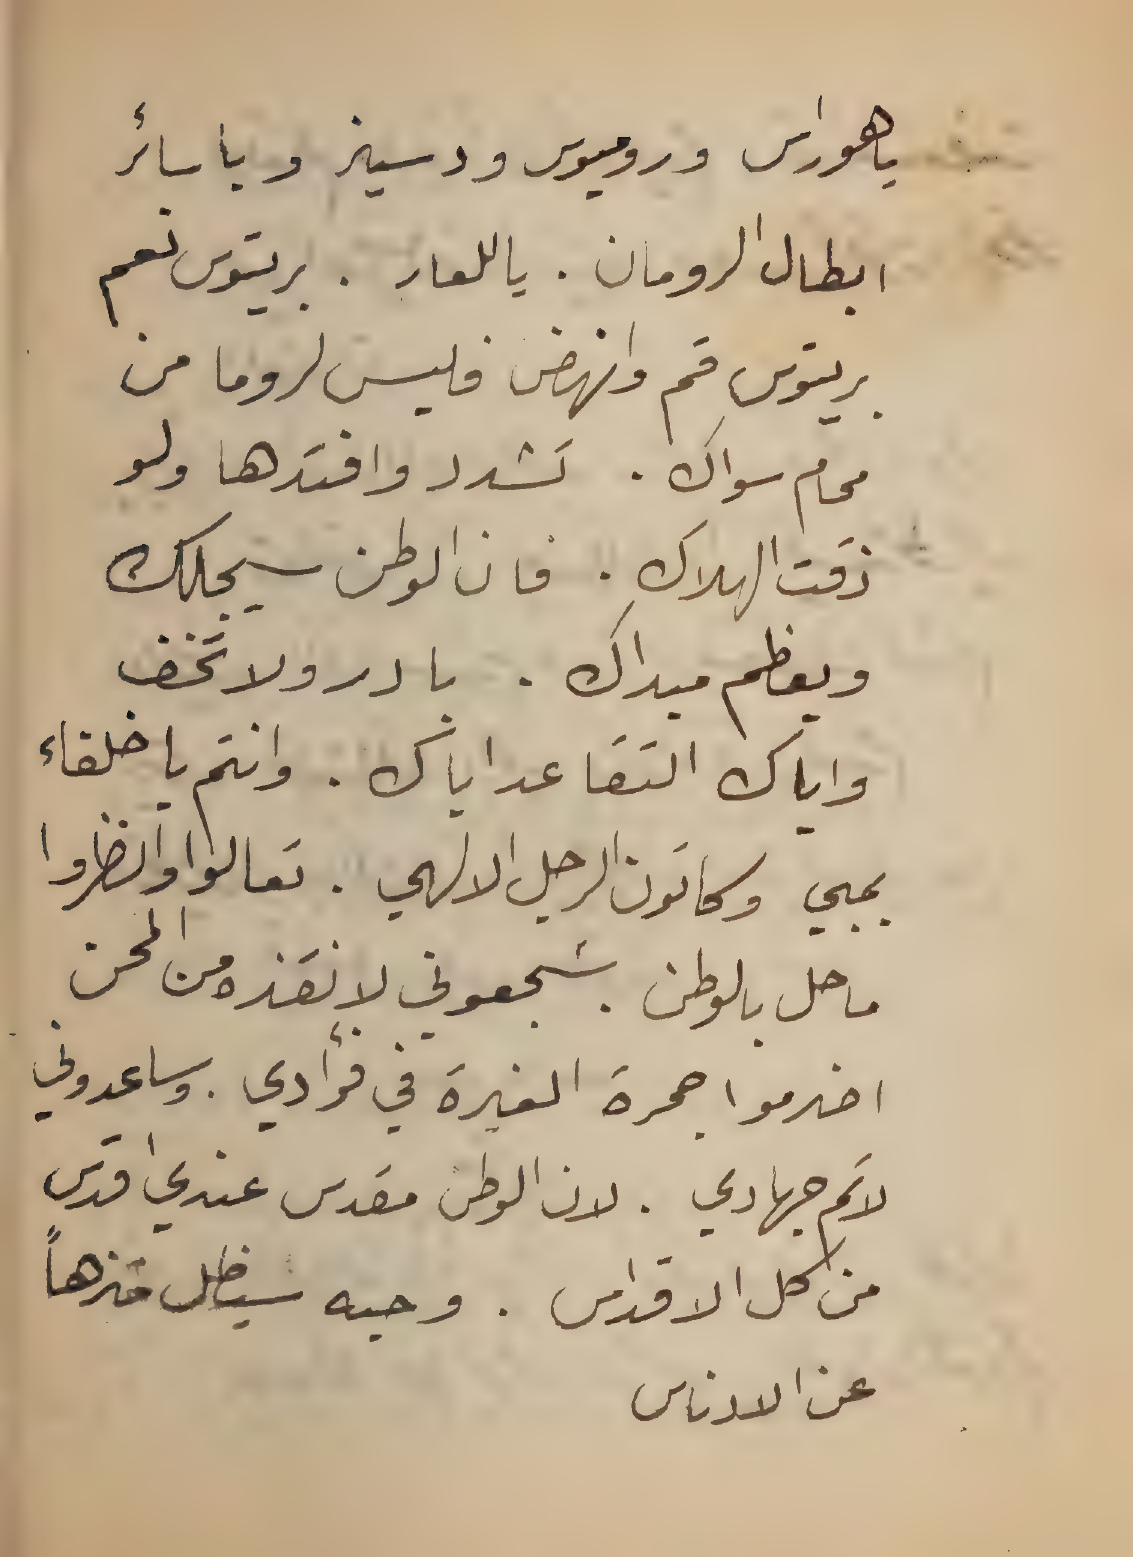 ياهوراس وروميوس ودسيز ويا سائر
ابطال الرومان . ياللعار . بريتوس نعم
بريتوس قم وانهض فليس لروما من
محام سواك . تشدد وافتدها ولو
ذقت الهلاك . فان الوطن سيجلك
ويعظم مبداك . بادر ولا تخف
واياك التقاعد اياك . وانتم يا خلفاء
بمبي وكاتون الرجل الالهي . تعالوا وانظروا
ماحل بالوطن . شجعوني لانقذه من المحن
اضرموا جمرة الغيرة في فؤادي . وساعدوني
لاتم جهادي . لان الوطن مقدس عندي اقدس
من كل الاقداس . وحبه سيظل منزهاً
عن الادناس